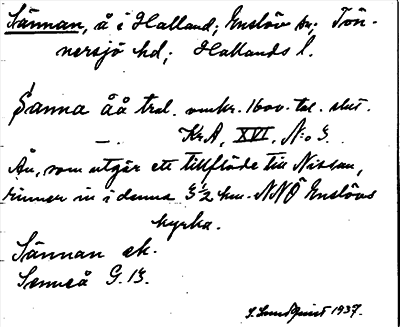 Sännan, å i Halland; Enslöv sn; Tön-
nersjö hd; Hallands l.
Sanna åå trol. omkr. 1600-tal. slut.
— KrA, XVI, N:o 3.
Ån, som utgör ett tillflöde till Nissan,
rinner in i denna 3 1/2 km. NNÖ Enslövs
kyrka.
Sännan ek.
Senneå G.B.
S. Lundquist 1937.